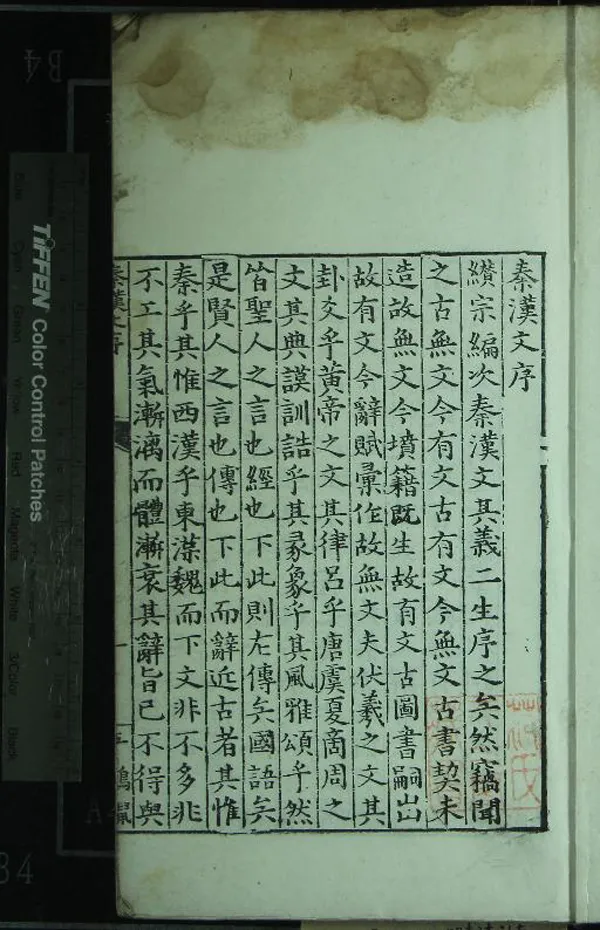 秦漢文序
纘宗編次秦漢文其義二生序之矣然竊聞
之古無文今有文古有文今無文古書契未
造故無文今墳籍既生故有文古圖書嗣出
故有文今辭賦彙作故無文夫伏羲之文其
卦爻乎黃帝之文其律呂乎唐虞夏商周之
文其典謨訓誥乎其彖象乎其風雅頌乎然
皆聖人之言也經也下此則左傳矣國語矣
是賢人之言也傳也下此而辭近古者其惟
秦乎其惟西漢乎東漢魏而下文非不多非
不工其氣漸漓而體漸衰其辭旨已不得與
秦漢文序
一
TIFFEN Color Control Patches
Cyan
Green
Red
Magenta
White
3/Color
Black
B4
A
B4